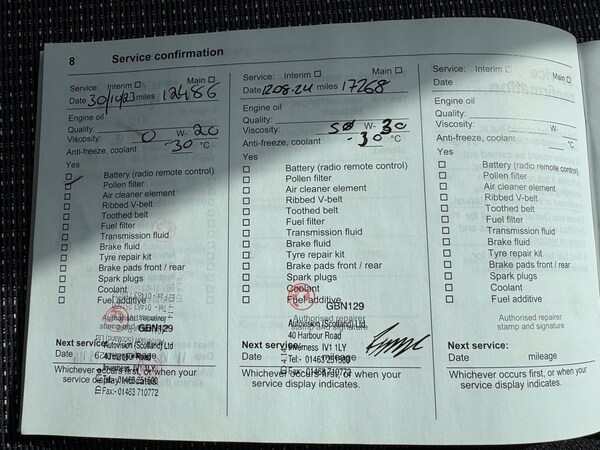 8 Service confirmation
Service: Interim Main
Date 30/10/23 miles 12486
Engine oil
Quality:
Viscosity: 0 W- 20
Anti-freeze, coolant -30 °C
Yes
Battery (radio remote control)
Pollen filter
Air cleaner element
Ribbed V-belt
Toothed belt
Fuel filter
Transmission fluid
Brake fluid
Tyre repair kit
Brake pads front / rear
Spark plugs
Coolant
Fuel additive
Authorised repairer
stamp and signature
GBN129
Autovision (Scotland) Ltd
40 Harbour Road
Inverness IV1 1LY
Tel:- 01463 251600
Fax:- 01463 710772
Next service:
Date mileage
Whichever occurs first, or when your
service display indicates.
Service: Interim Main
Date 12.08.24 miles 17268
Engine oil
Quality:
Viscosity: W- 30
Anti-freeze, coolant -30 °C
Yes
Battery (radio remote control)
Pollen filter
Air cleaner element
Ribbed V-belt
Toothed belt
Fuel filter
Transmission fluid
Brake fluid
Tyre repair kit
Brake pads front / rear
Spark plugs
Coolant
Fuel additive
GBN129
Authorised repairer
stamp and signature
Autovision (Scotland) Ltd
40 Harbour Road
Inverness IV1 1LY
Tel:- 01463
Fax:- 01463 710772
Next service:
Date mileage
Whichever occurs first, or when your
service display indicates.
Service: Interim Main
Date
Engine oil
Quality:
Viscosity: W-
Anti-freeze, coolant °C
Yes
Battery (radio remote control)
Pollen filter
Air cleaner element
Ribbed V-belt
Toothed belt
Fuel filter
Transmission fluid
Brake fluid
Tyre repair kit
Brake pads front / rear
Spark plugs
Coolant
Fuel additive
Authorised repairer
stamp and signature
Next service:
Date mileage
Whichever occurs first, or when your
service display indicates.